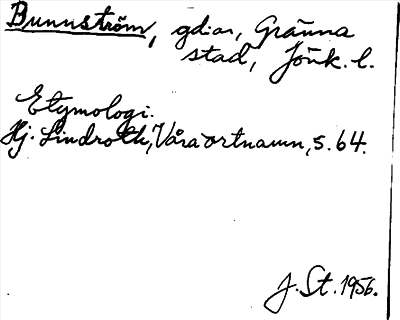 Bunnström, gdar, Gränna
stad, Jönk. l.
Etymologi.
Hj. Lindroth, Våra ortnamn, s. 64.
J. St. 1956.